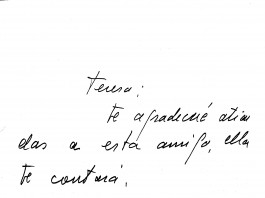 Teresa:
te agradeceré atien
das a esta amiga, ella
te contará.